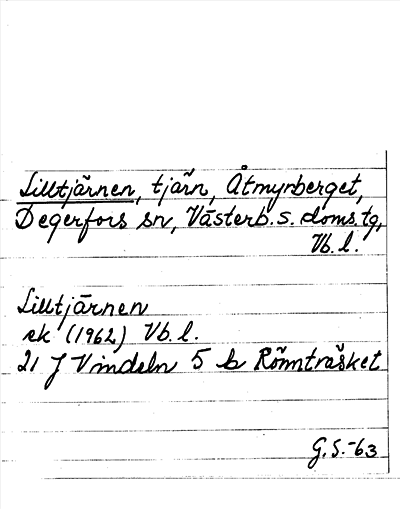 Lilltjärnen, tjärn, Åtmyrberget,
Degerfors sn, Västerb. s. doms. tg,
Vb. l.
Lilltjärnen
ek (1962) Vb. l.
21 J Vindeln 5 b Rönnträsket
G. S. -63